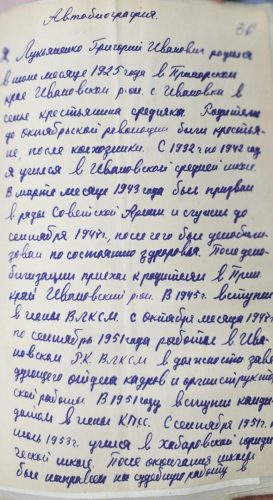 Автобиография.
36
Я, Лукьяненко Григорий Иванович родился
в июне месяце 1925 года в Приморском
крае Ивановской р-он. с. Ивановка в
семье крестьянина середняка. Родители
до октябрьской революции были крестья-
не, после колхозники. С 1932 г. по 1942 год
я учился в Ивановской средней школе.
В марте месяце 1943 года был призван
в ряды Советской Армии и служил до
сентября 1945 г., после чего был демобили-
зован по состоянию здоровья. После демо-
билизации приехал к родителям в Прим.
край Ивановский р-он. В 1945 г. вступил
в члены ВЛКСМ. С октября месяца
по сентябрь 1951 года работал в Ива-
новском РК ВЛКСМ в должности заве-
дующего отдела кадров и орг.инструктор-
ской работы. В 1951 году вступил канди-
датом в члены КПСС. С сентября 1951 г. по
июль 1953 г. учился в хабаровской юриди-
ческой школе. После окончания школы
был направлен на судебную работу в